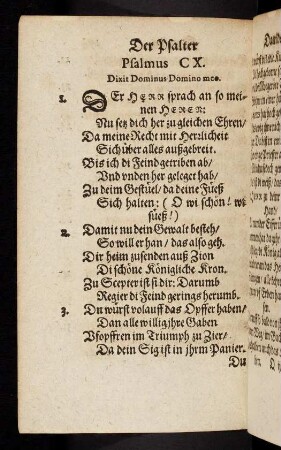 Der Psalter
Psalmus CX.
Dixit Dominus Domino meo.
1. DEr HERR sprach an so mei-
nen HEREN:
Nu setz dich her zu gleichen Ehren/
Da meine Recht mit Herzlicheit
Sich über alles außgebreit.
Bis ich di Feind getriben ab/
Vnd vnden her geleget hab/
Zu deim Gestüel/da deine Füeß
Sich halten: (O wi schön! wi
süeß!)
2. Damit nu dein Gewalt besteh/
So will er han/das also geh.
Dir heim zusenden auß Zion
Di schöne Königliche Kron.
Zu Scepter ist si dir: Darumb
Regier di Feind gerings herumb.
3. Du würst volauff das Opffer haben/
Dan alle willig jhre Gaben
Vfopffren im Triumph zu Zier/
Da dein Sig ist in jhrm Panier.
Du